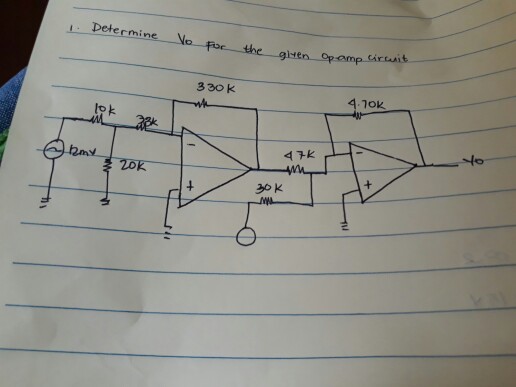 1. Determine Vo for the given op-amp circuit
330 K
10k
33k
4.70K
12mv
20K
47K
Vo
30 K